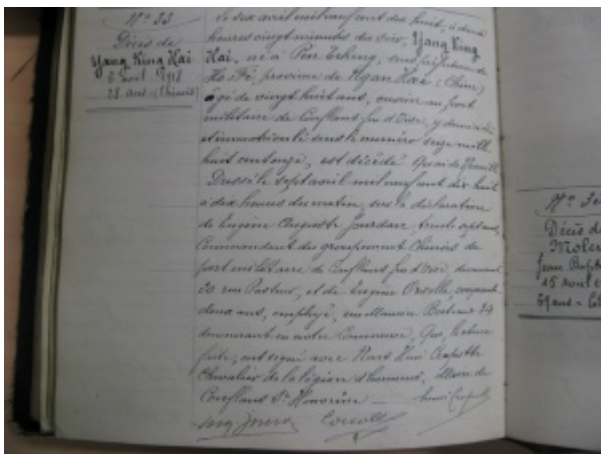 Nº 33
Décès de
Yang King Hai
6 avril 1918
28 ans (Chinois)
Le six avril mil neuf cent dix huit, à deux
heures vingt minutes du soir, Yang King
Hai, né à Pin Tcheng, sous préfecture de
Ho Fé, province de Ngan Hoei (Chine)
âgé de vingt huit ans, au port
militaire de Conflans fin d'Oise, y
et immatriculé sous le numéro mille
huit cent onze, est décédé Quai de
Dressé le sept avril mil neuf cent dix huit
à dix heures du matin, sur la déclaration
de Eugène Auguste Jourdan, trente sept ans,
Commandant du groupement Chinois du
port militaire de Conflans fin d'Oise, demeurant
20 rue Pasteur, et de Eugène Orvelle, cinquante
deux ans, employé, rue Maurice Berteaux 24
demeurant en cette Commune, Qui, lecture
faite, ont signé avec Nous Henri Crapotte
Chevalier de la légion d'honneur, Maire de
Conflans Ste Honorine
Nº 3
Décès de
Moler
Jean Bapt
15 avril
ans